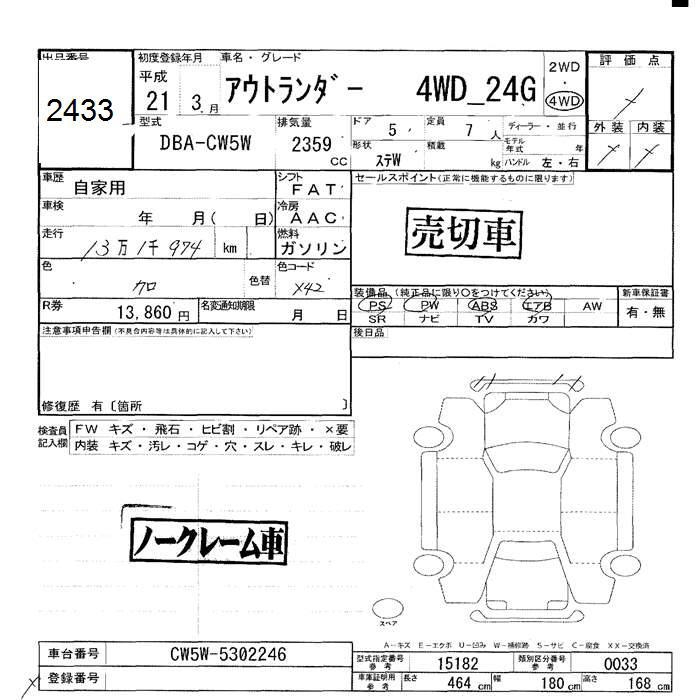 出品番号
2433
初度登録年月
平成
21 3 月
車名・グレード
アウトランダー 4WD_24G
2WD
・
4WD
評価点
外装 内装
型式
DBA-CW5W
排気量
2359
CC
ドア
5
定員
7 人
ディーラー・並行
形状
ステW
積載
kg
モデル
年式
年
ハンドル 左・右
車歴
自家用
シフト
FAT
車検
年 月( 日)
冷房
AAC
走行
13万1千974 km
燃料
ガソリン
色
クロ
色替
色コード
X42
R券
13,860 円
名変通知期限
月 日
セールスポイント(正常に機能するものに限ります)
売切車
装備品 (純正品に限り○をつけてください)
PS PW ABS エアB AW
SR ナビ TV カワ
新車保証書
有・無
後日品
注意事項申告欄(不具合内容等は具体的に記入して下さい)
修復歴 有〔箇所 〕
検査員
記入欄
FW キズ・飛石・ヒビ割・リペア跡・×要
内装 キズ・汚レ・コゲ・穴・スレ・キレ・破レ
ノークレーム車
スペア
A-キズ E-エクボ U-凹み W-補修跡 S-サビ C-腐食 XX-交換済
車台番号
CW5W-5302246
登録番号
型式指定番号
参考
15182
類別区分番号
参考
0033
車庫証明用
参考
長さ 464 cm 幅 180 cm 高さ 168 cm